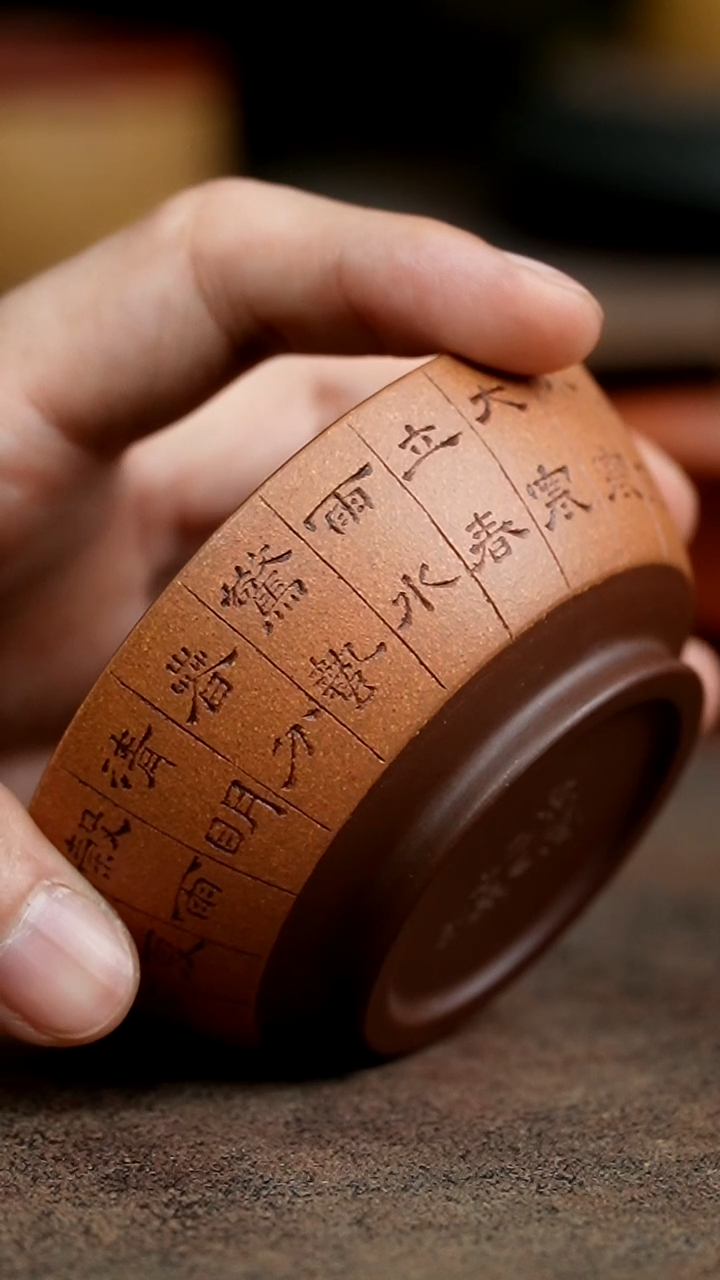 寒
大寒
立春
雨水
驚蟄
春分
清明
穀雨
夏